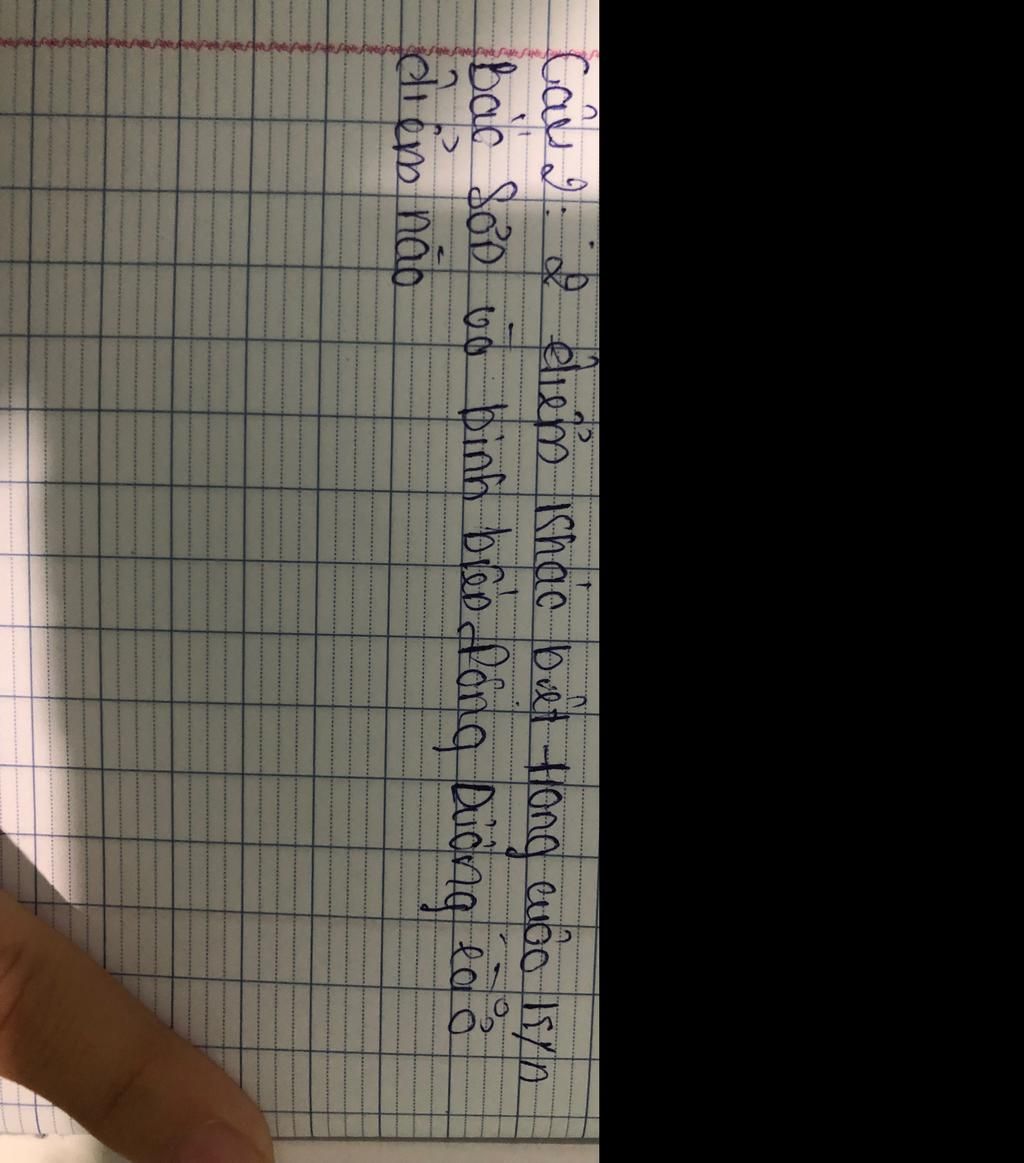 Câu 2: 2 điểm khác biệt trong cuộc k/n
Bắc Sơn và binh biến Đông Dương là ở
điểm nào